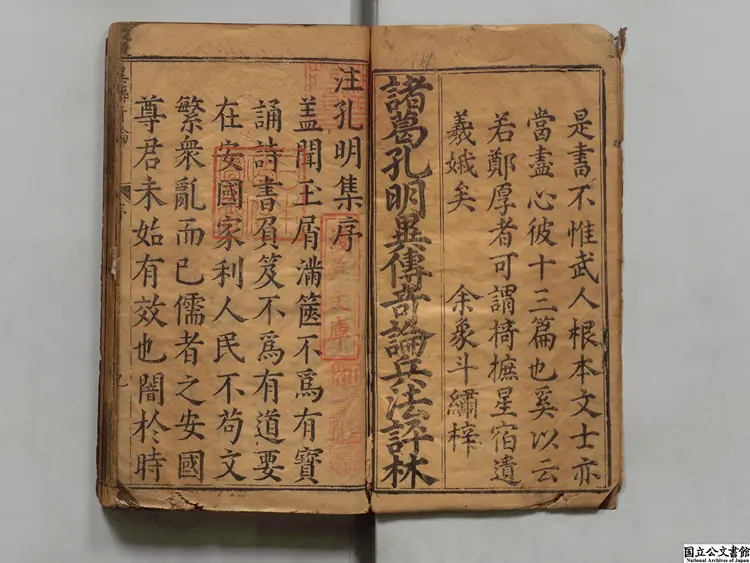 是書不惟武人根本文士亦
當盡心彼十三篇也奚以云
若鄭厚者可謂掎摭星宿遺
羲娥矣　余象斗繡梓
諸葛孔明異傳奇論兵法評林
注孔明集序
盖聞玉屑滿篋不爲有寶
誦詩書負笈不爲有道要
在安國家利人民不苟文
繁衆亂而已儒者之安國
尊君未始有效也闇於時
国立公文書館
National Archives of Japan